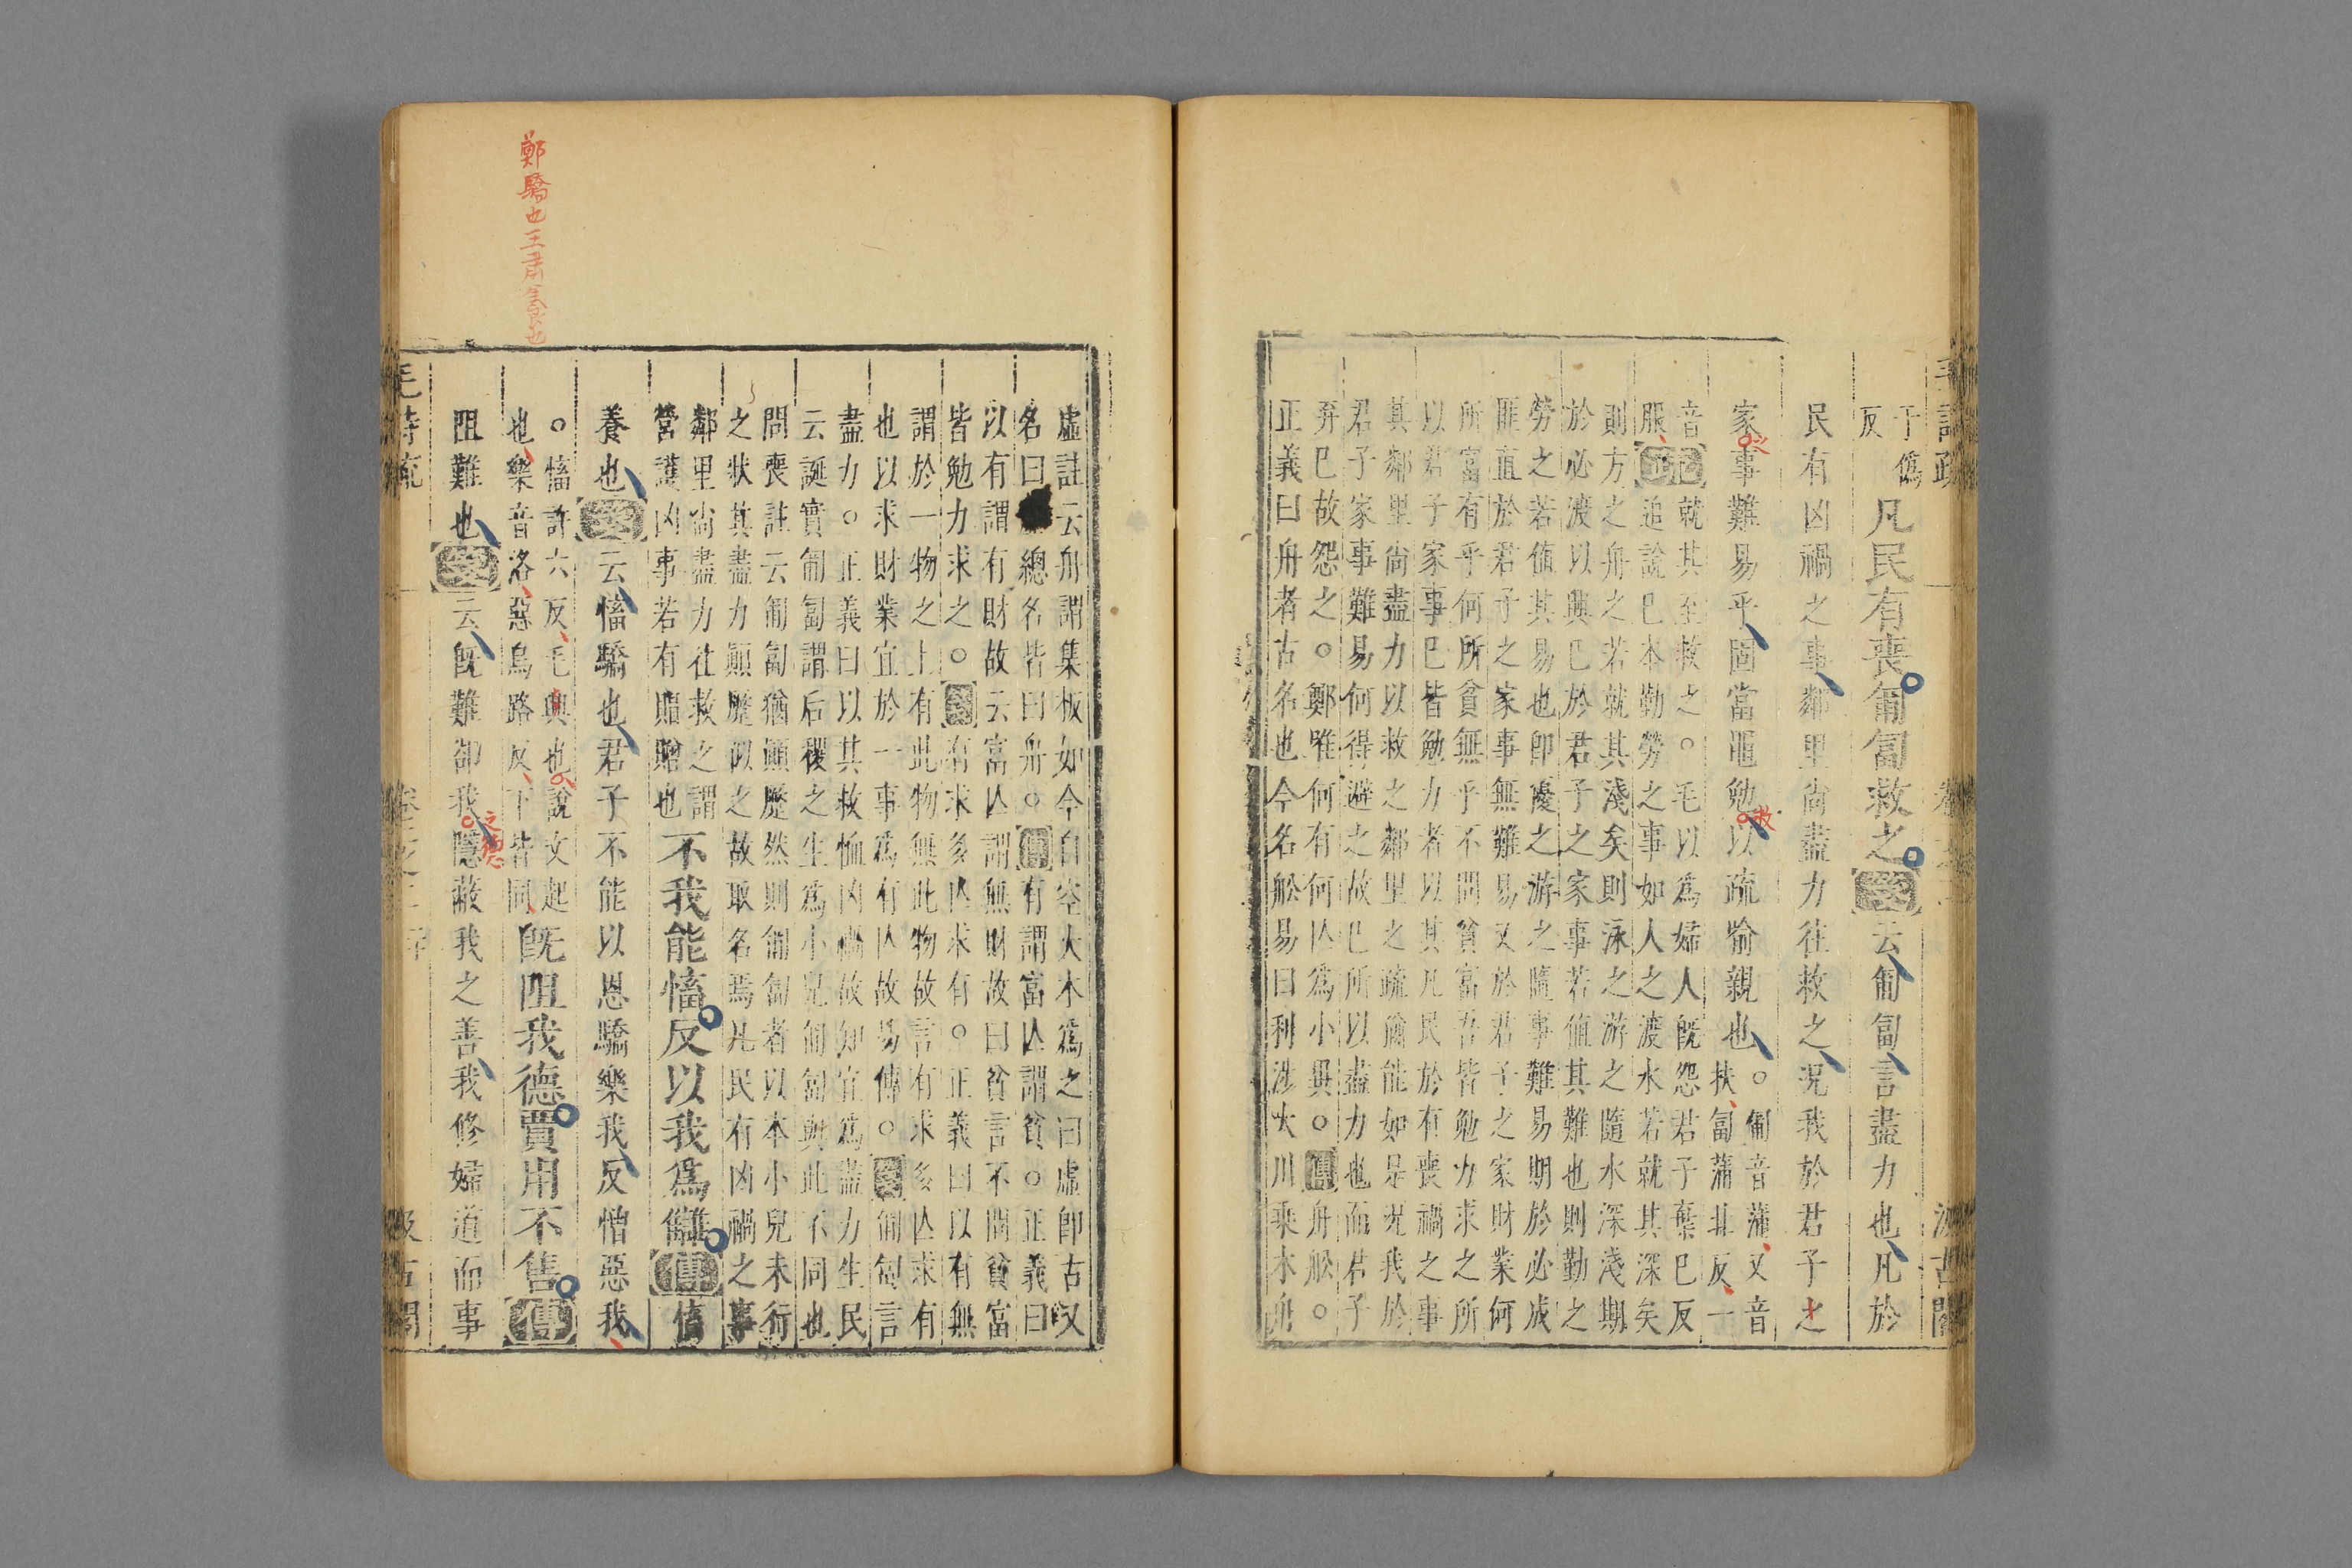 于僞
反
凡民有喪匍匐救之箋云匍匐言盡力也凡於
民有凶禍之事鄰里尚盡力往救之況我於君子之
家事難易乎固當黽勉以疏喻親也。匍音蒲又音
扶匐蒲北反一
音服疏就其至救之。毛以為婦人既怨君子棄已反
追說已本勤勞之事如人之渡水若就其深矣
則方之舟之若就其淺矣則泳之游之隨水深淺期
於必渡以興已於君子之家事若值其難也則勤之
勞之若值其易也即優之游之隨事難易期於必成
匪直於君子之家事無難易又於君子之家財業何
所富有乎何所貧無乎不問貧富吾皆勉力求之所
以君子家事已皆勉力者以其凡民於有喪禍之事
其鄰里尚盡力以救之鄰里之疏猶能如是況我於
君子家事難易何得避之故已所以盡力也而君子
弃已故怨之。鄭唯何有何亾為小異。傳舟船。
正義曰舟者古名也今名船易曰利涉大川乘木舟
虛註云舟謂集板如今自空大木為之曰虛即古又
名曰總名皆曰舟。傳有謂富亾謂貧。正義曰
以有謂有財故云富亾謂無財故曰貧言不問貧富
皆勉力求之。箋有求多亾求有。正義曰以有無
謂於一物之上有此物無此物故言有求多亾求有
也以求財業宜於一事為有亾故易傳。箋匍匐言
盡力。正義曰以其救恤凶禍故知宜為盡力生民
云誕實匍匐謂后稷之生為小兒匍匐與此不同也
問喪註云匍匐猶顛蹷然則匍匐者以本小兒未行
之狀其盡力顛蹷似之故取名焉凡民有凶禍之事
鄰里尚盡力往救之謂
營護凶事若有賵贈也
不我能慉反以我為讎傳慉
養也箋云慉驕也君子不能以恩驕樂我反憎惡我
。慉許六反毛興也說文起
也樂音洛惡烏路反下皆同
既阻我德賈用不售傳
阻難也箋云既難卻我隱蔽我之善我修婦道而事
鄭驕也王肅養也
之德